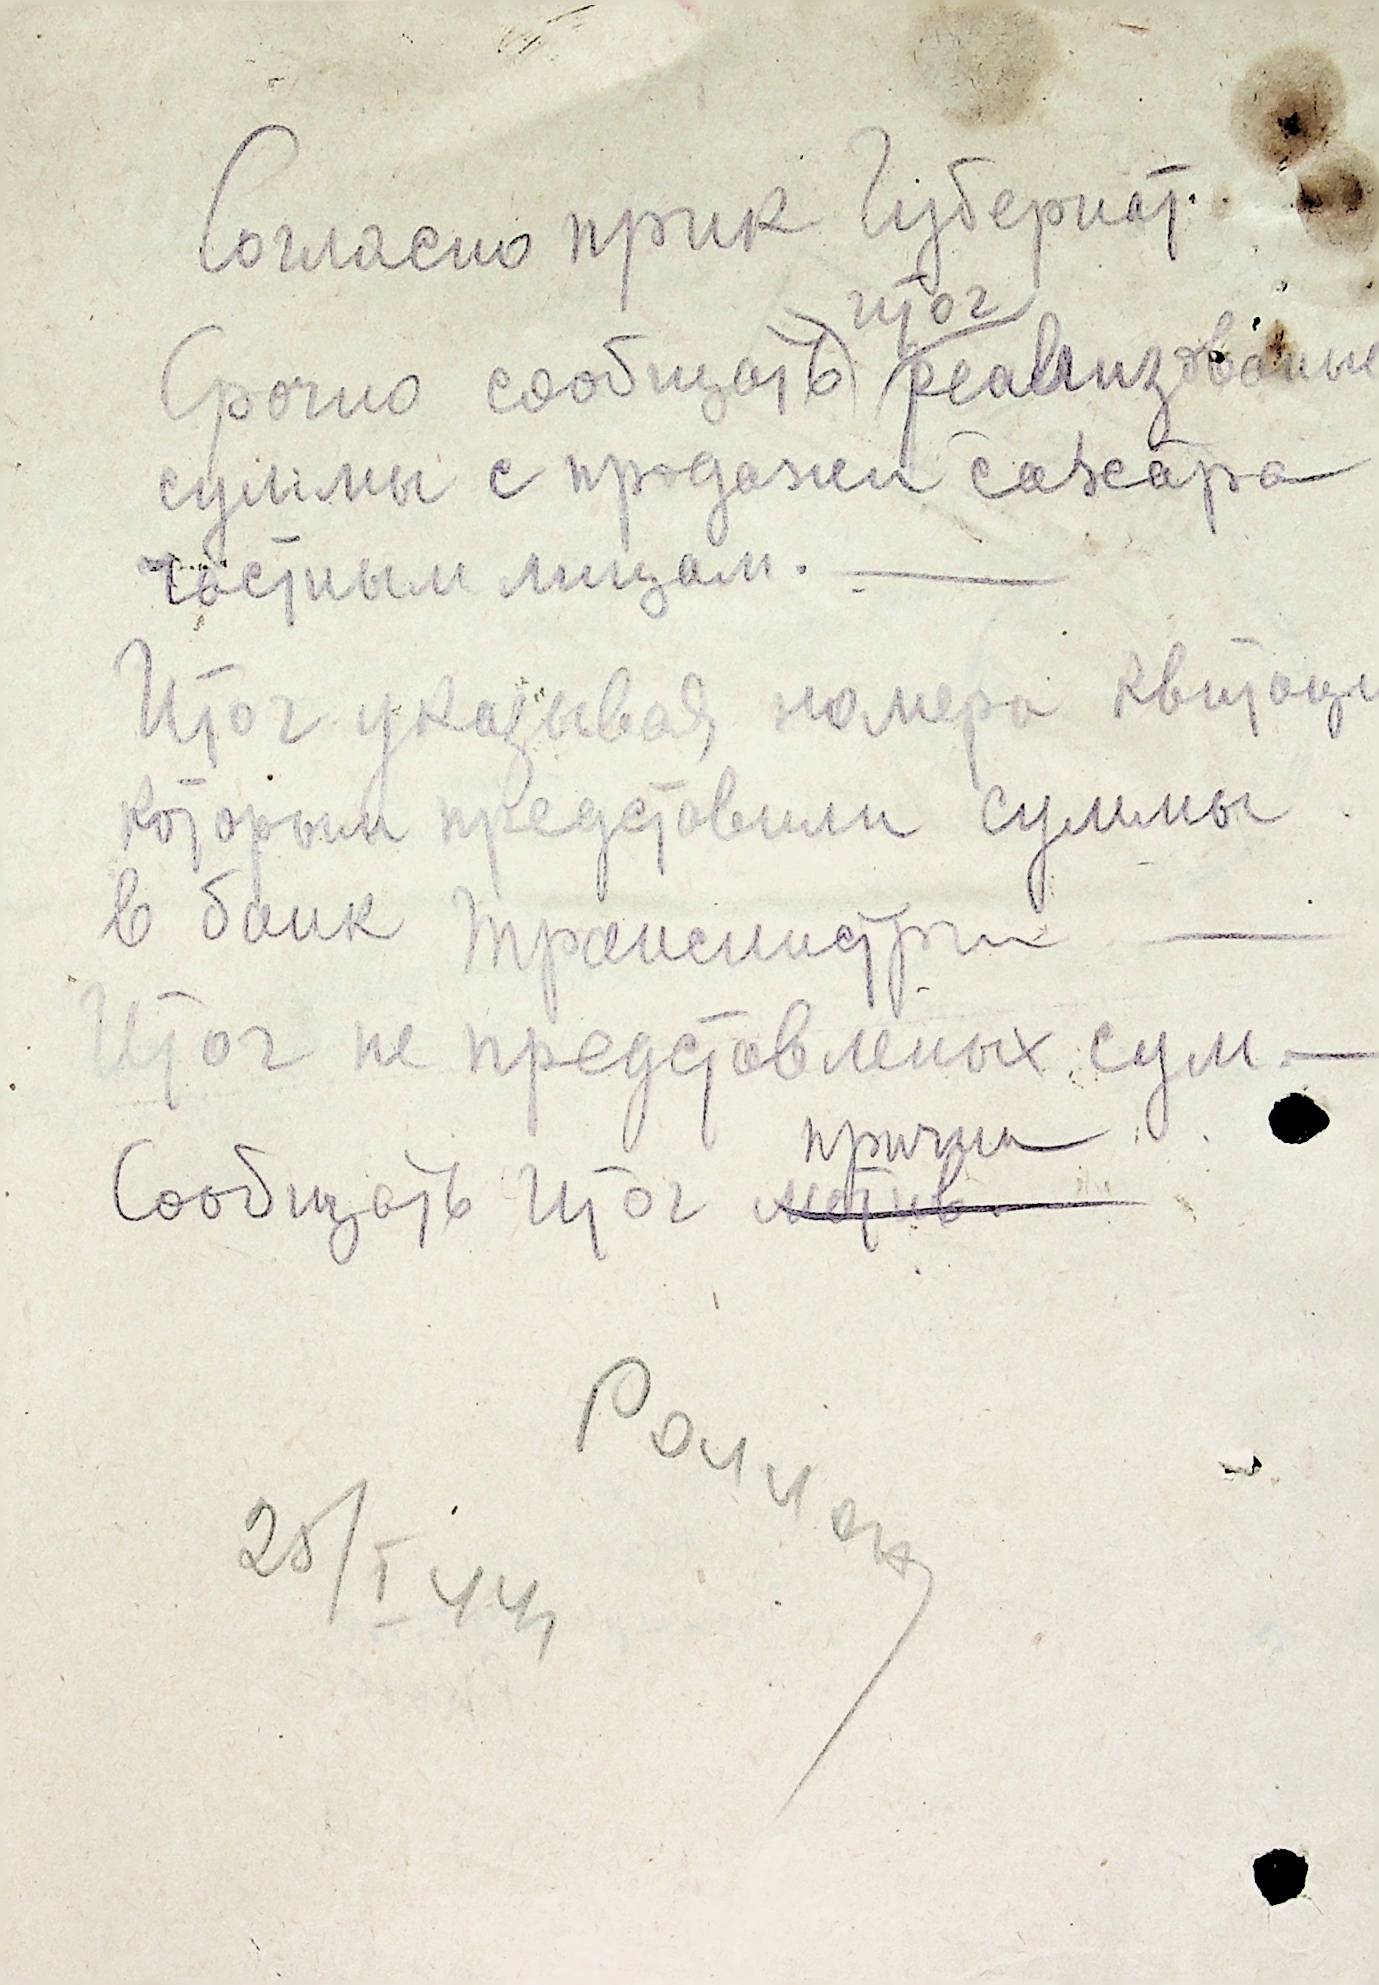 Согласно прик Губернат.
итог
Срочно сообщать реализованые
суммы с продажи сахара
частным лицам. —
Итог указывая номера квитаци
которым представили суммы
в банк Транснистрии —
Итог не представленых сум. —
причин
Сообщать итог мотив.
25/I 44,